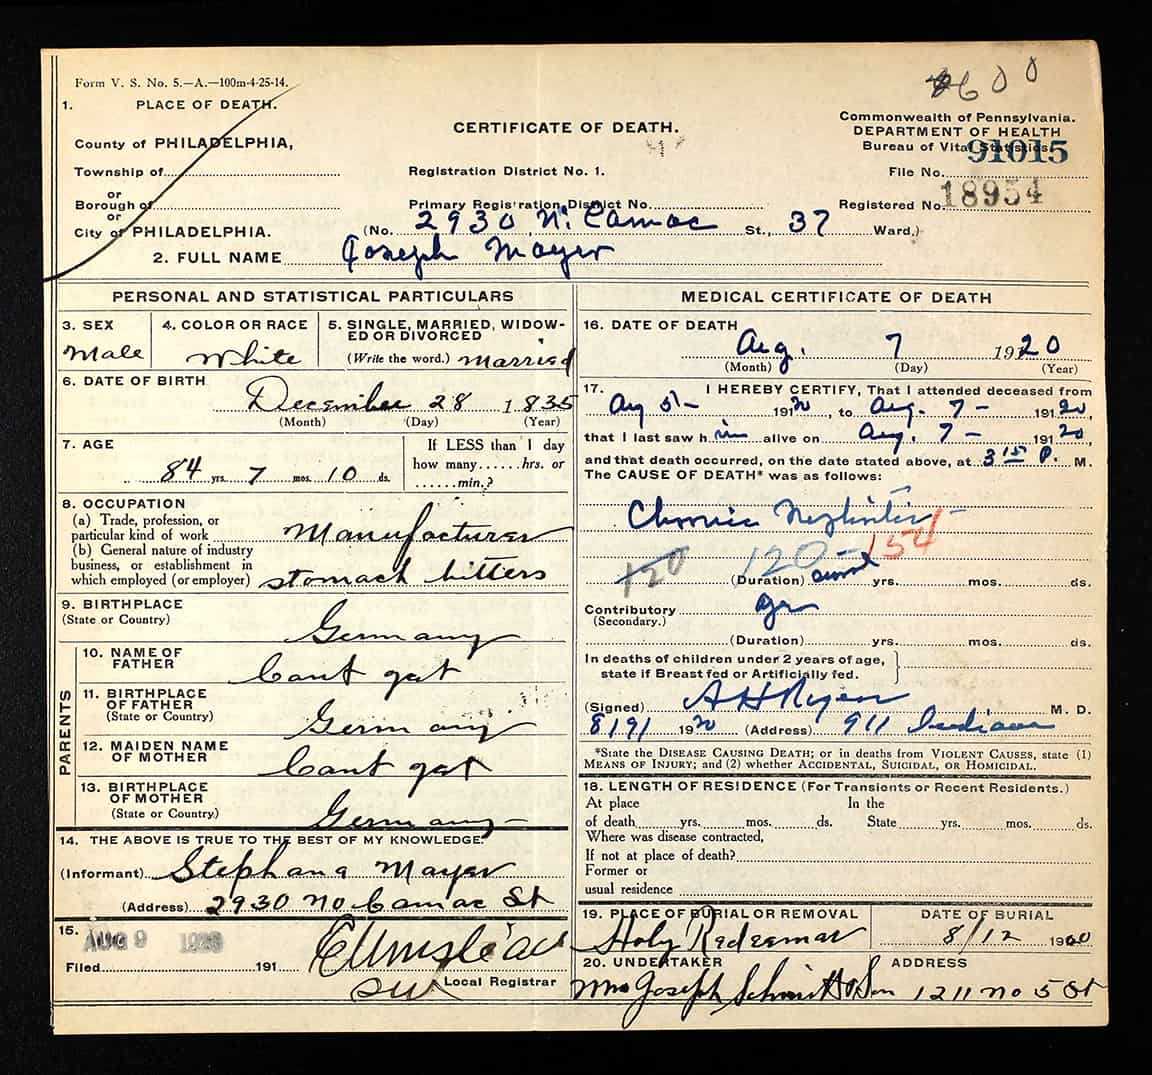 Form V. S. No. 5.—A.—100m-4-25-14.
8600
1. PLACE OF DEATH.
County of PHILADELPHIA,
Township of
or
Borough of
or
City of PHILADELPHIA.
CERTIFICATE OF DEATH.
Registration District No. 1.
Primary Registration District No.
(No. 2930 N. Camac St., 37 Ward.)
Commonwealth of Pennsylvania.
DEPARTMENT OF HEALTH
Bureau of Vital Statistics.
91015
File No.
Registered No. 18954
2. FULL NAME Joseph Mayer
PERSONAL AND STATISTICAL PARTICULARS
3. SEX
Male
4. COLOR OR RACE
White
5. SINGLE, MARRIED, WIDOW-
ED OR DIVORCED
(Write the word.) married
6. DATE OF BIRTH
December 28 1835
(Month) (Day) (Year)
7. AGE
84 yrs. 7 mos. 10 ds.
If LESS than 1 day
how many......hrs. or
......min.?
8. OCCUPATION
(a) Trade, profession, or
particular kind of work Manufacturer
(b) General nature of industry
business, or establishment in
which employed (or employer) stomach bitters
9. BIRTHPLACE
(State or Country)
Germany
PARENTS
10. NAME OF
FATHER
Cant get
11. BIRTHPLACE
OF FATHER
(State or Country)
Germany
12. MAIDEN NAME
OF MOTHER
Cant get
13. BIRTHPLACE
OF MOTHER
(State or Country)
Germany
14. THE ABOVE IS TRUE TO THE BEST OF MY KNOWLEDGE.
(Informant) Stephana Mayer
(Address) 2930 No Camac St
15.
AUG 9 1920
Filed 191
Local Registrar
MEDICAL CERTIFICATE OF DEATH
16. DATE OF DEATH
Aug. 7 1920
(Month) (Day) (Year)
17. I HEREBY CERTIFY, That I attended deceased from
Aug 5- 1920, to Aug. 7- 1920,
that I last saw him alive on Aug. 7- 1920,
and that death occurred, on the date stated above, at 3 15 P. M.
The CAUSE OF DEATH* was as follows:
Chronic Nephritis-
120 120- 154
(Duration) yrs. mos. ds.
Contributory
(Secondary.)
(Duration) yrs. mos. ds.
In deaths of children under 2 years of age,
state if Breast fed or Artificially fed.
(Signed) M. D.
1920 (Address) 911 Indiana
*State the DISEASE CAUSING DEATH; or in deaths from VIOLENT CAUSES, state (1)
MEANS OF INJURY; and (2) whether ACCIDENTAL, SUICIDAL, OR HOMICIDAL.
18. LENGTH OF RESIDENCE (For Transients or Recent Residents.)
At place In the
of death yrs. mos. ds. State yrs. mos. ds.
Where was disease contracted,
If not at place of death?
Former or
usual residence
19. PLACE OF BURIAL OR REMOVAL
Holy Redeemer
DATE OF BURIAL
8/12 1920
20. UNDERTAKER
Mrs Joseph Schmitt & Son
ADDRESS
1211 No 5 St